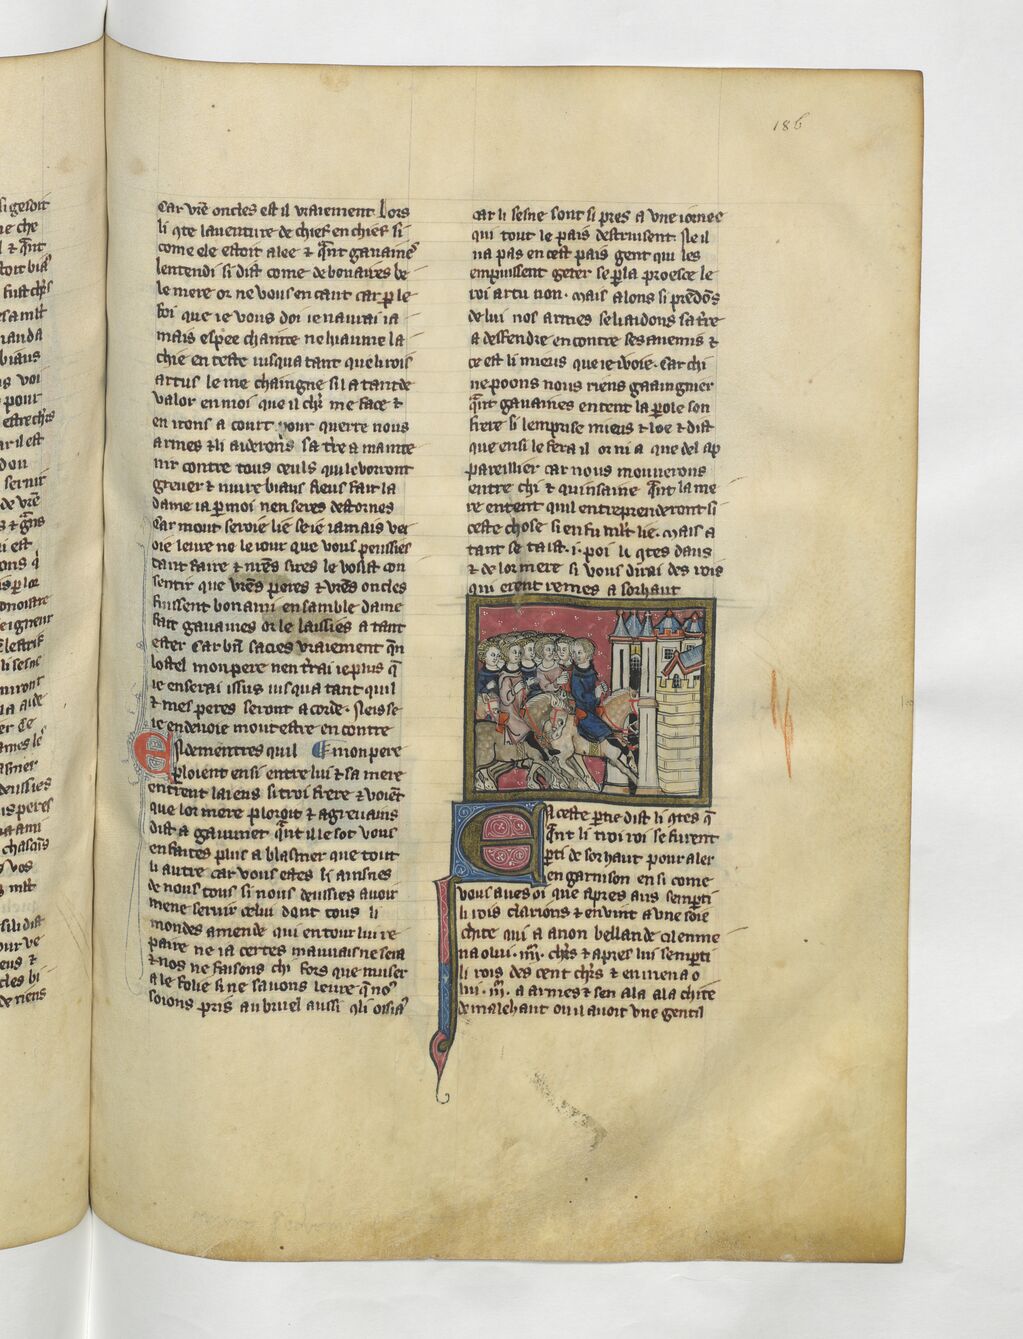 186
Car vr̃e oncles est il vraiement Lors
li ɋte lauenture de chief en chief si
come ele estoit alee ⁊ q̃nt gauaine⁹
lentendi si dist come de bonaires be
le mere or ne vous en caut car ꝑ le
foi que ie vous doi ie naurai ia
mais espee chainte ne hiaume la
chie en teste iusqua tant que li rois
artus le me chaingne sil a tant de
valor en moi que il ch̃r me face ⁊
en irons a court pour querre nous
armes ⁊ li aiderons sa tr̃e a mainte
nir contre tous ceuls qui le vorront
greuer ⁊ nuire biaus fieus fait la
dame ia ꝑ moi nen seres destornes
Car mout seroie lie se ie iamais ve
oie leure ne le iour que vous peussies
tant faire ⁊ nr̃es sires le vosist con
sentir que vr̃es peres ⁊ vr̃es oncles
fuissent bon ami ensamble dame
fait gauaines or le laissies a tant
ester Car bñ sacies vraiement q̃n
lostel mon pere nen tr̃rai ie plus q̃
ie en serai issus iusqua tant quil
⁊ mes peres seront acorde. Neis se
ie en deuoie mout estre en contre
Esdementres quil ¶ mon pere
ploient ensi entre lui ⁊ sa mere
entrent laiens si troi frere ⁊ voiẽt
que lor mere ploroit ⁊ agreuains
dist a gauuinet q̃nt il le sot vous
en faites plus a blasmer que tout
li autre car vous estes li ainsnes
de nous tous si nous deussies auoir
mene seruir celui dont tous li
mondes amende qui entour lui re
paire ne ia certes mauuais ne sera
⁊ nos ne faisons chi fors que muser
a le folie si ne sauons leure q̃ no⁹
soions pris au bruel aussi ɋ li oisia⁹
car li sesne sont si pres a vne iornee
qui tout le pais destruisent Ne il
na pas en cest pais gent qui les
en puissent geter se ꝑ la proesce le
roi artu non. Mais alons si prẽdõs
de lui nos armes se li aidons sa tr̃re
a desfendre encontre ses anemis ⁊
ce est li mieus que ie voie. Car chi
ne poons nous riens gaaingnier
q̃nt gauaines entent la ꝑole son
frere si lemprise mieus ⁊ loe ⁊ dist
que ensi le fera il or ni a que del ap
pareillier car nous mouuerons
entre chi ⁊ quinsaine q̃nt la me
re entent quil entreprenderont si
ceste chose si en fu ml̃t lie. Mais a
tant se taist .i. poi li ɋtes dans
⁊ de lor mere si vous dirai des rois
qui erent remes a sorhaut
En ceste ꝑtie dist li ɋtes q̃
q̃nt li troi roi se furent
ꝑti de sorhaut pour aler
en garnison ensi come
vous aues oi que apres aus se ꝑti
li rois clarions ⁊ en vint a vne soie
chite qui a a non bellande ⁊ len me
na o lui .iiiͫ. ch̃rs ⁊ apres lui se ꝑti
li rois des cent ch̃rs ⁊ en mena o
lui .iiiͫ. a armes ⁊ sen ala a la chite
de malehaut ou il auoit vne gentil